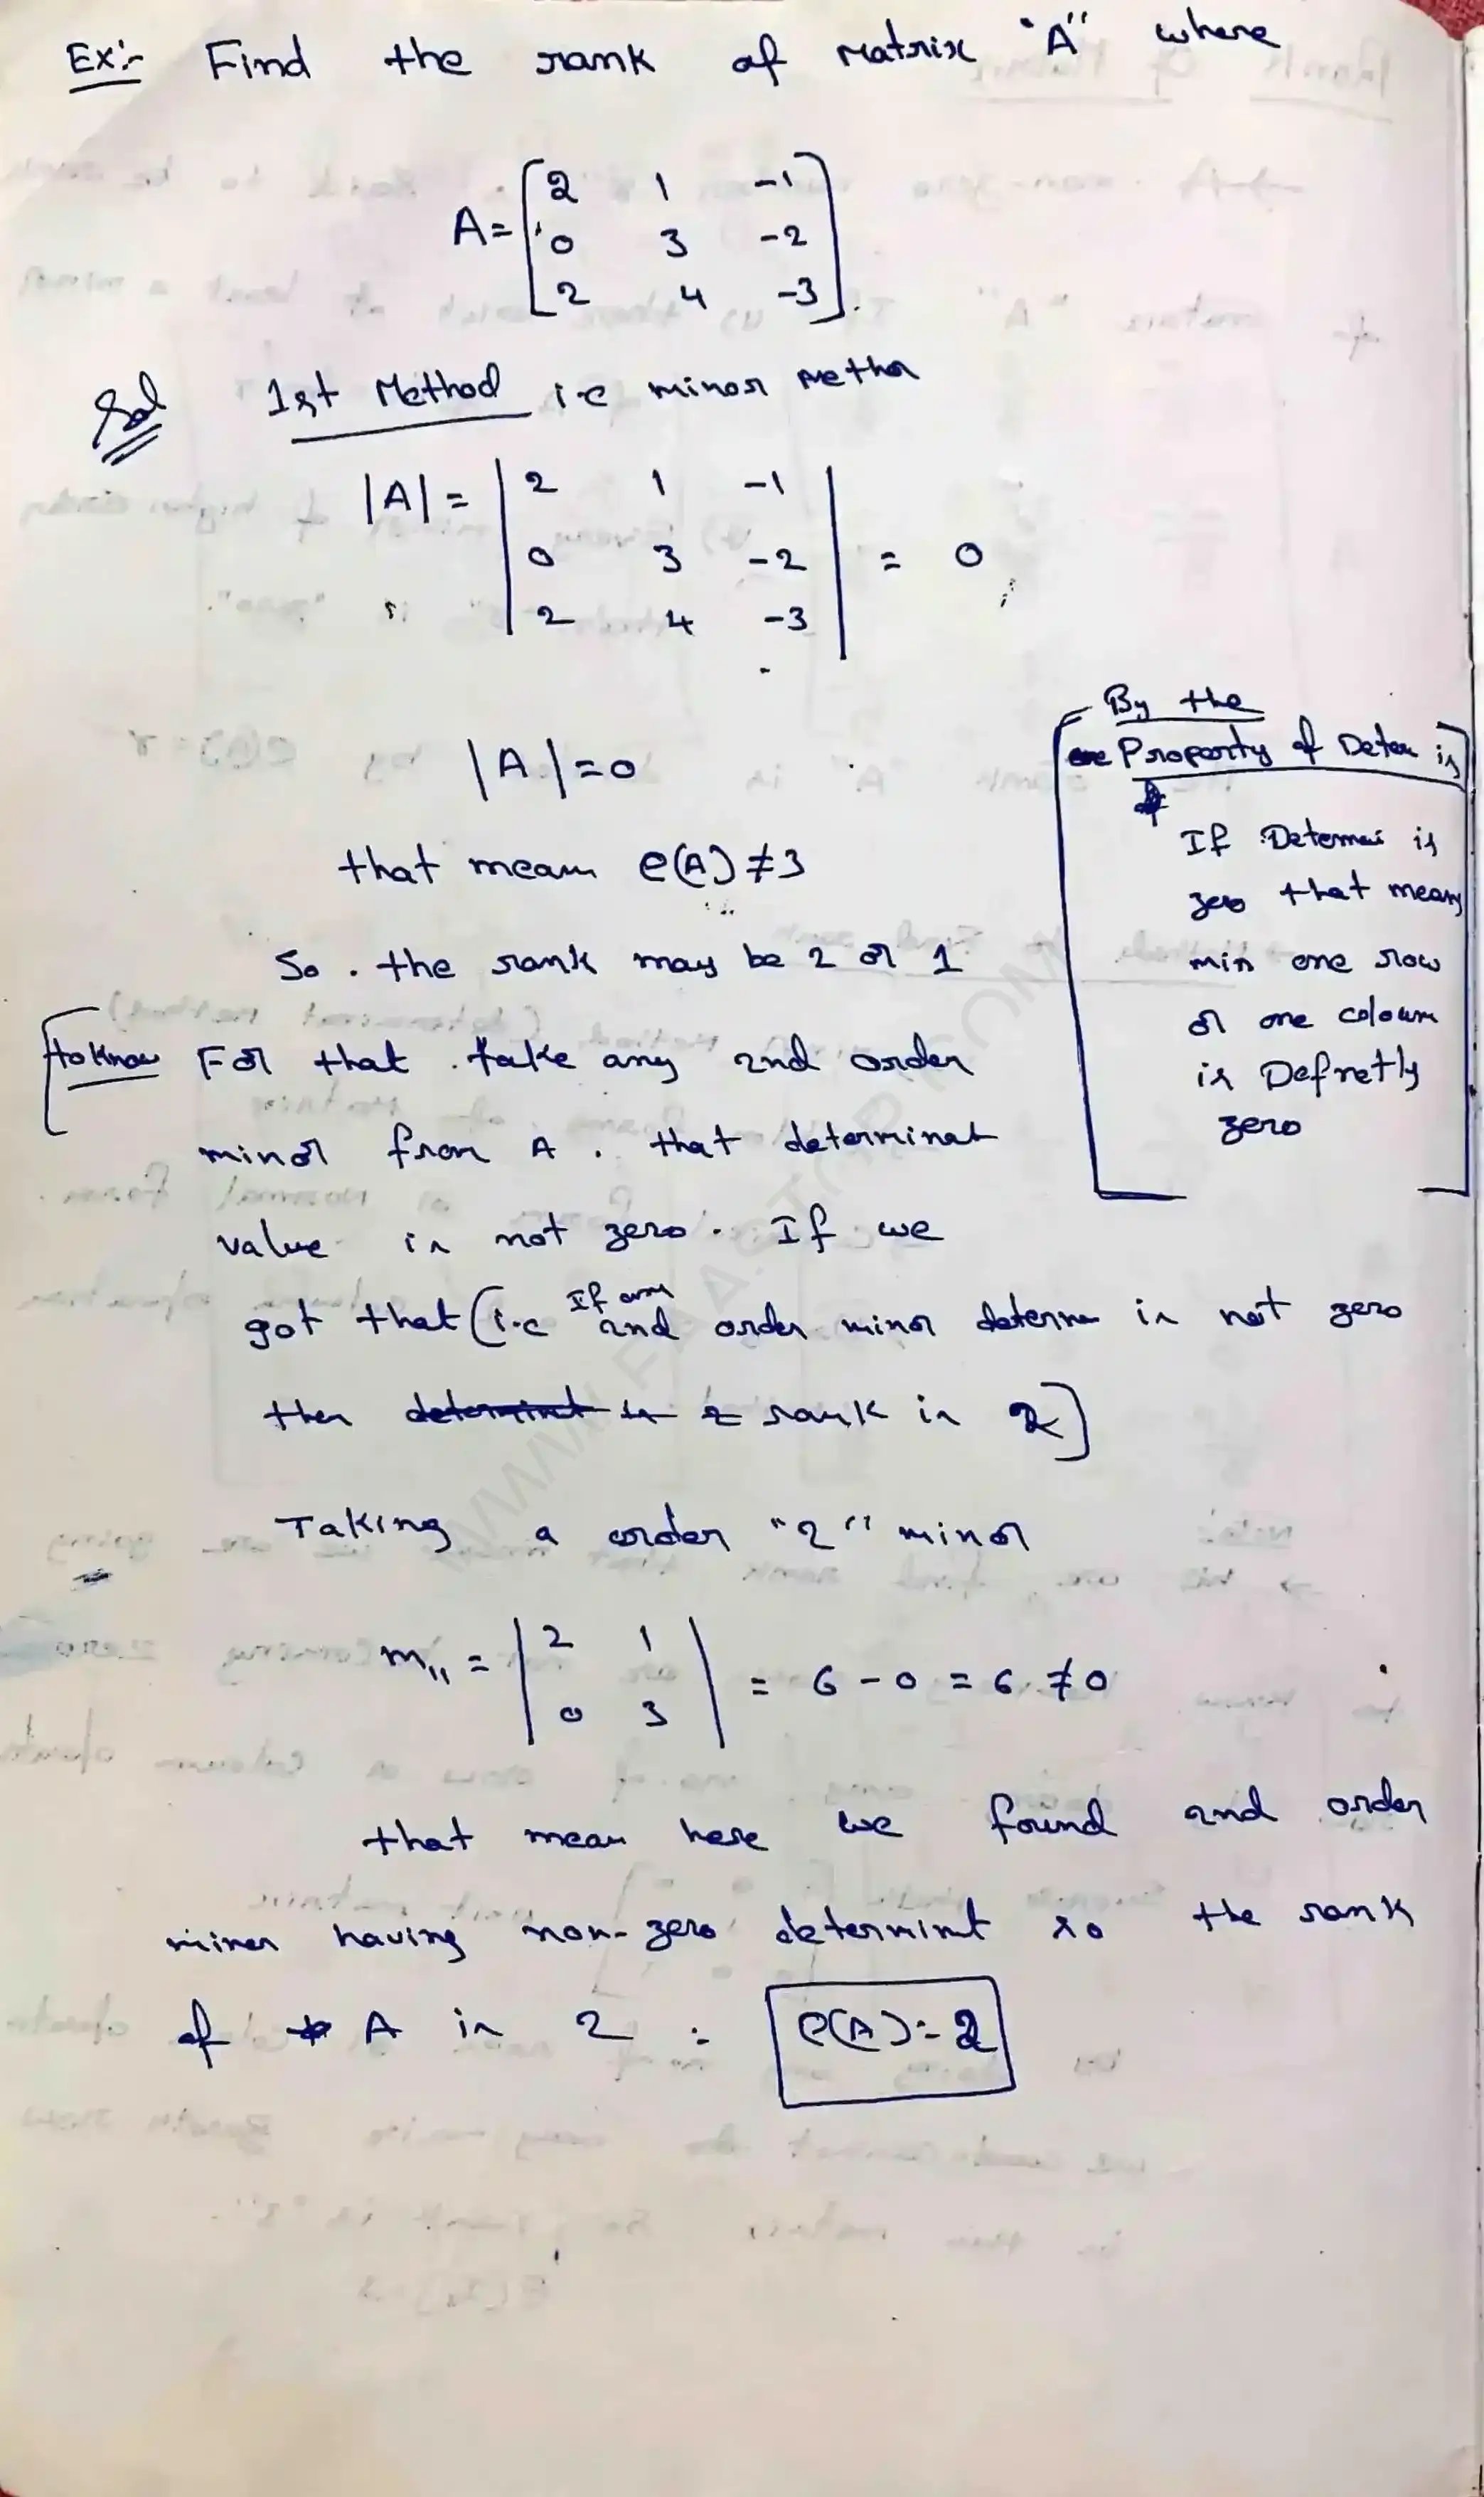 Ex:- Find the rank of Matrix "A" where
A= [2 1 -1
0 3 -2
2 4 -3].
Sol 1st Method i.e minor Metho
|A| = |2 1 -1
0 3 -2
2 4 -3| = 0
|A|=0
that mean ρ(A)≠3
So. the rank may be 2 or 1
[to know For that take any 2nd order
minor from A. that determinat
value is not zero. If we
got that (i.e If any 2nd order minor determ is not zero
then determint is 2 rank is 2]
Taking a order "2" minor
m₁₁ = |2 1
0 3| = 6 - 0 = 6 ≠ 0
that mean here we found 2nd order
minor having non-zero determint so the rank
of A is 2 : ρ(A)=2
[By the
one Property of Deter is
If Determi is
zero that means
min one row
or one coloum
is Defnetly
zero]